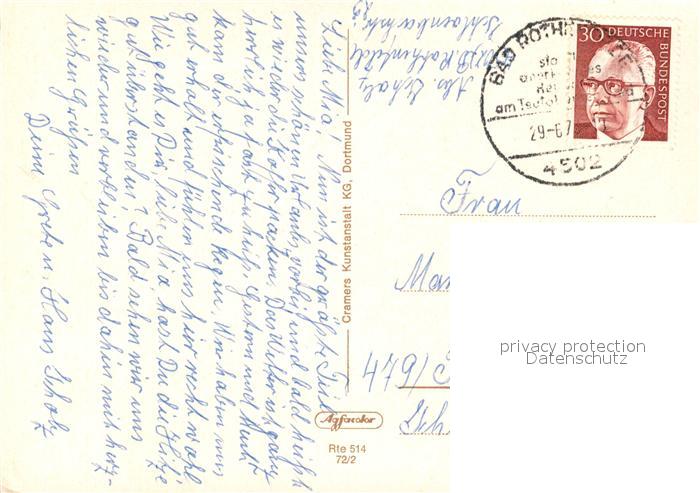 Liebe Mia! Nun ist der größte Teil
unseres schönen Urlaubs vorbei, und bald heißt
es wieder die Koffer packen. Das Wetter ist ganz
herrlich, ja fast zu heiß. Gestern und heute
kam der erfrischende Regen. Wir haben uns
gut erholt und fühlen uns hier recht wohl
Wie geht es Dir, liebe Mia, hast Du die Hitze
gut überstanden? Bald sehen wir uns
wieder und verbleiben bis dahin mit herz-
lichen Grüßen
Deine Grete u. Hans Scholz
Cramers Kunstanstalt KG, Dortmund
Abs. Scholz
Bad Rothenfelde
30 DEUTSCHE BUNDESPOST
BAD ROTHENFELDE
am Teutoburger
29-6.7
4502
Frau
479/
privacy protection
Datenschutz
Agfacolor
Rte 514
72/2